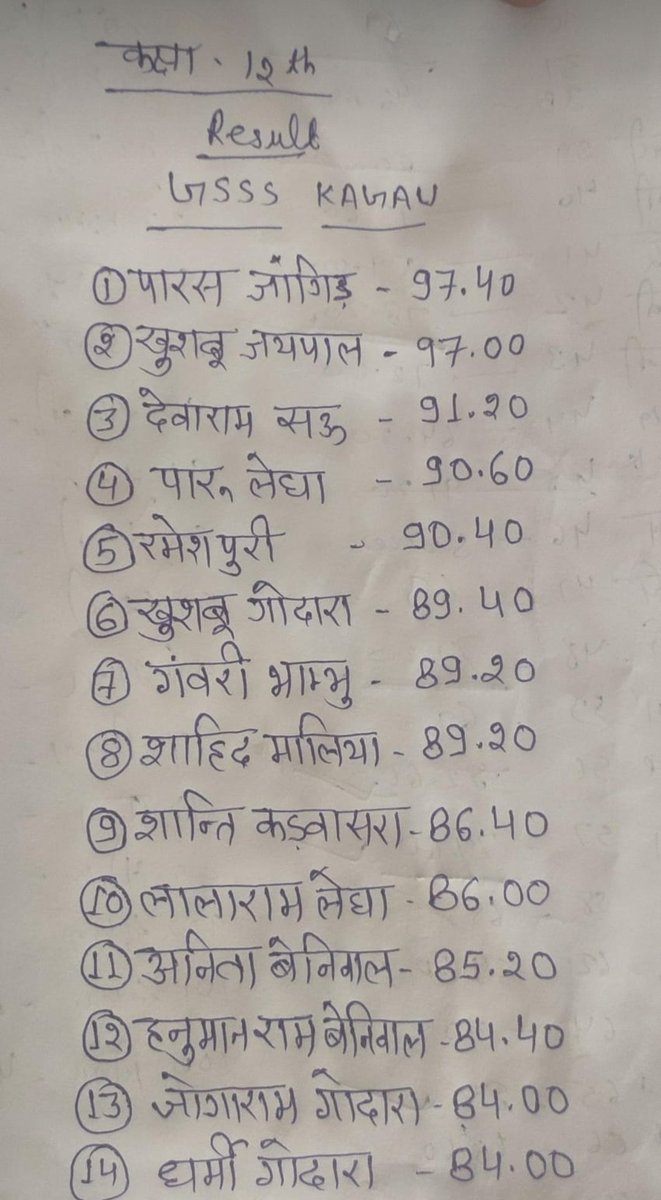 कक्षा · 12th
Result
GSSS KAGAU
① पारस जांगिड़ - 97.40
② खुशबू जयपाल - 97.00
③ देवाराम सऊ - 91.20
④ पारू लेघा - 90.60
⑤ रमेशपुरी - 90.40
⑥ खुशबू गोदारा - 89.40
⑦ गंवरी भाम्भु - 89.20
⑧ शाहिद मालिया - 89.20
⑨ शान्ति कड़वासरा - 86.40
⑩ लालाराम लेघा - 86.00
⑪ अनिता बेनिवाल - 85.20
⑫ हनुमानराम बेनिवाल - 84.40
⑬ जोगाराम गोदारा - 84.00
⑭ धर्मी गोदारा - 84.00